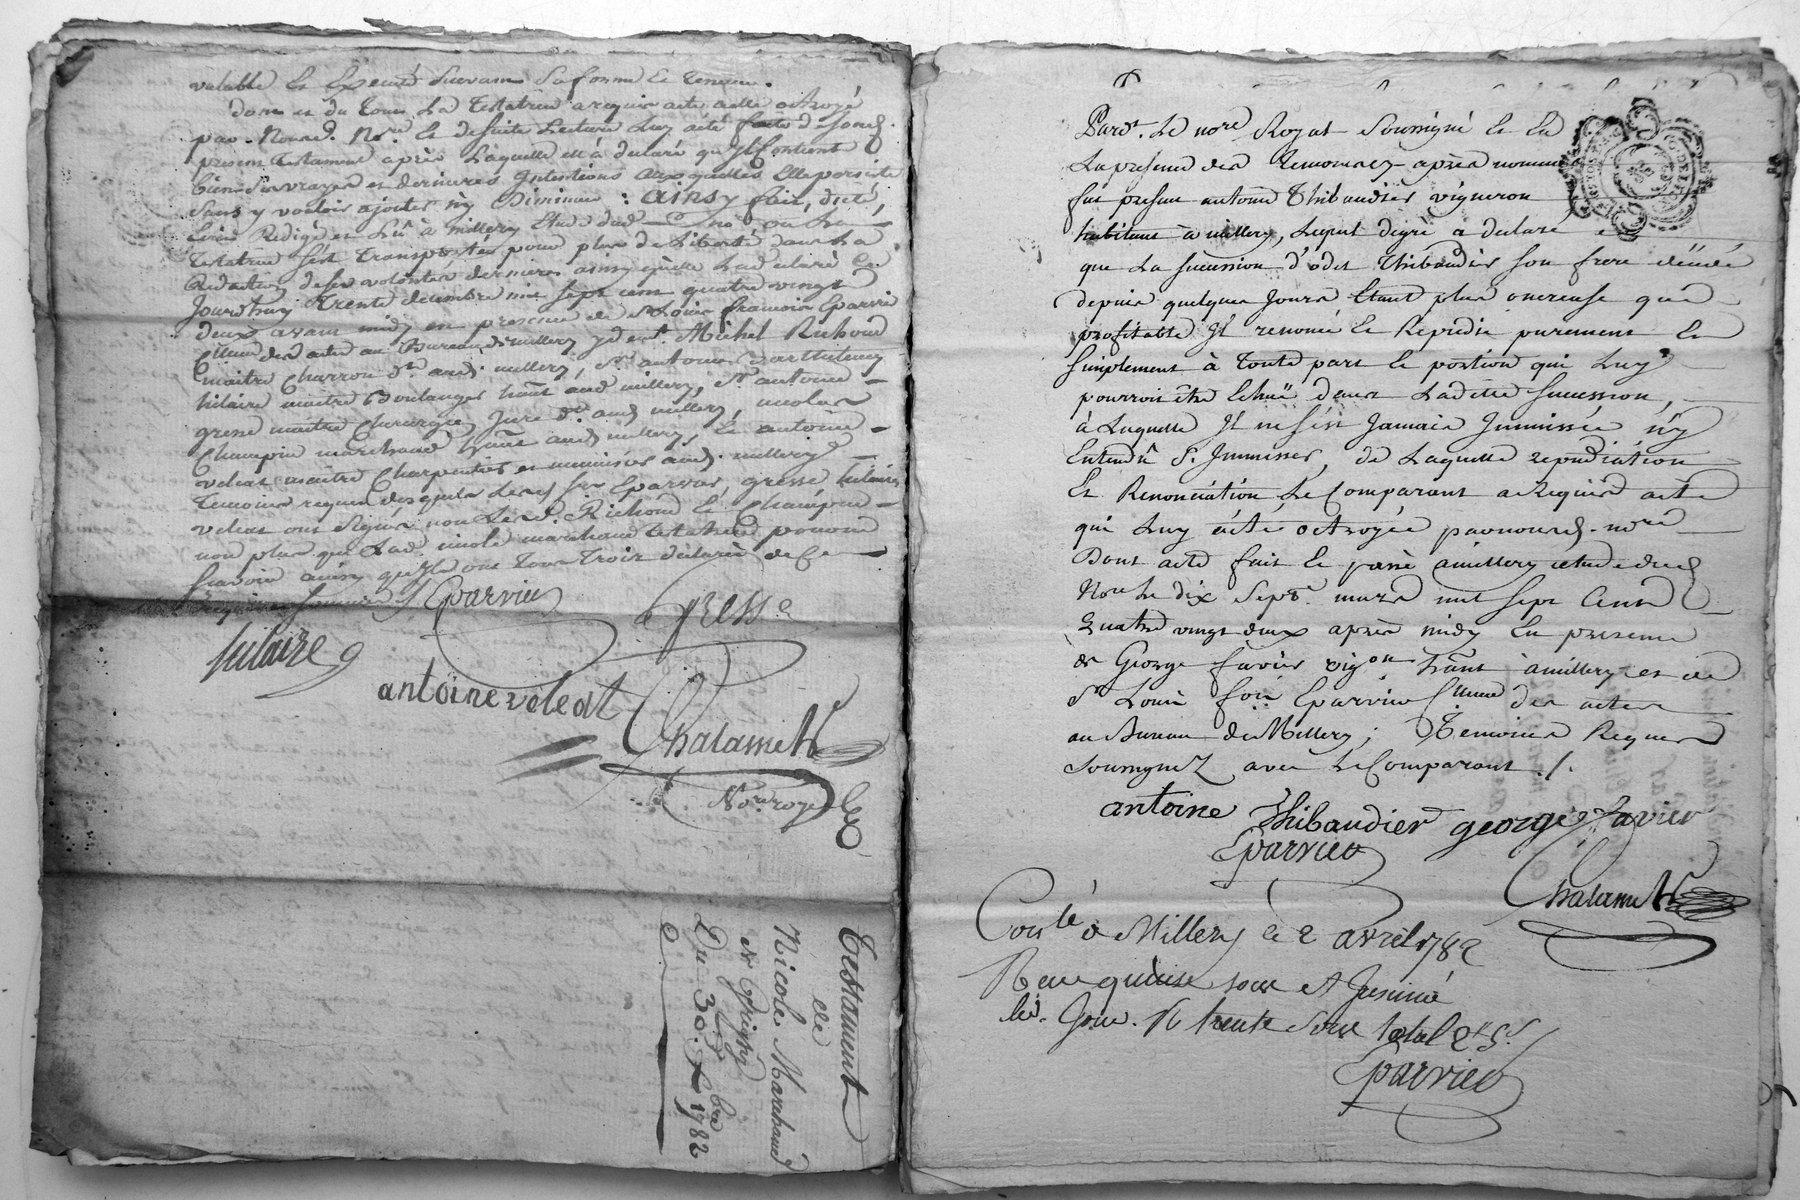 valable et Executé Suivant Sa forme et teneur.
Dont et du tout La Testatrice a requis acte a elle octroyé
par Nousd. Nore. et de suite Lecture Luy a été faite de sond.
present Testament après Laquelle ell'à declaré qu'Il Contient
bien Ses vrayes et dernieres Intentions auxquelles Elle persiste
Sans y vouloir ajouter ny Diminuer : ainsy fait, dicté,
Ecrit Redigé et Lû à millery Etude dud. Nore ou La
Testatrice s'est transportée pour plus de Liberté dans La
Redaction de ses volontés dernieres ainsy qu'elle La declaré Ce
Jourdhuy trente decembre mil sept cent quatre vingt
deux avant midy en presence de Sr Louis françois Eparvier
Commis des actes au Bureau de millery y dt. Michel Richoud
maitre Charron dt. aud. millery, Sr. antoine Barthelemy
hilaire maitre Boulanger hânt aud millery, Sr antoine
gresse maitre Chirurgien Juré dt. aud millery, nicolas
Champin marchand hânt aud millery, et antoine
veleat maitre Charpentier et menuisier aud. millery
temoins requis desquels Lesd. Srs Eparvier, gresse hilaire
veleat ont signés non Lesd. Richoud et Champin
non plus que Lad. nicole marchand testatrice pour ne
Scavoir ainsy qu'Ils ont tous trois declarés de Ce
Enquis et sommés
Eparvier
gresse
hilaire
antoine veleat
Chalamel
Nore. roy
Testament
de
Nicole Marchand
de Grigny
Du 30. Xbre 1782
Pardt. Le nore Royal Soussigné et En
La presence des temoins après nommés
fut present antoine Thibaudier vigneron
habitant à millery, Lequel degré a declaré
que La succession d'odet Thibaudier son frere décédé
depuis quelques Jours Etant plus onereuse que
profitable Il renonce et Repudie purement et
Simplement à toute part et portion qui Luy
pourroit être Echüe dans Ladite succession,
à Laquelle Il ne s'est Jamais Immissée n'y
Entendû S'Immisser, de Laquelle repudiation
Et Renonciation Le Comparant a Requis acte
qui Luy a été octroyée par nousd. nore
Dont acte fait et passé a millery etude dud
Nore Le dix Sept. mars mil sept Cent
Quatre vingt deux après midy En presence
de George favier vigon hânt à millery et de
Sr Louis fois Eparvier Commis des actes
au Bureau de Millery; temoins Requis
Soussignez avec Le Comparant ./.
antoine Thibaudier george favier
Eparvier
Chalamel
Conlé à Millery le 2 avril 1782
Reçu quinze sous et Insinué
led. Jour. R trente Sous total 2# 5s.
Eparvier